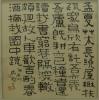 孟夏艸木長繞屋樹扶
疏眾鳥欣有託吾亦愛
吾廬既耕亦已種時還
讀我書窮巷隔深轍頗
迴故人車歡言酌春
酒摘我園中蔬